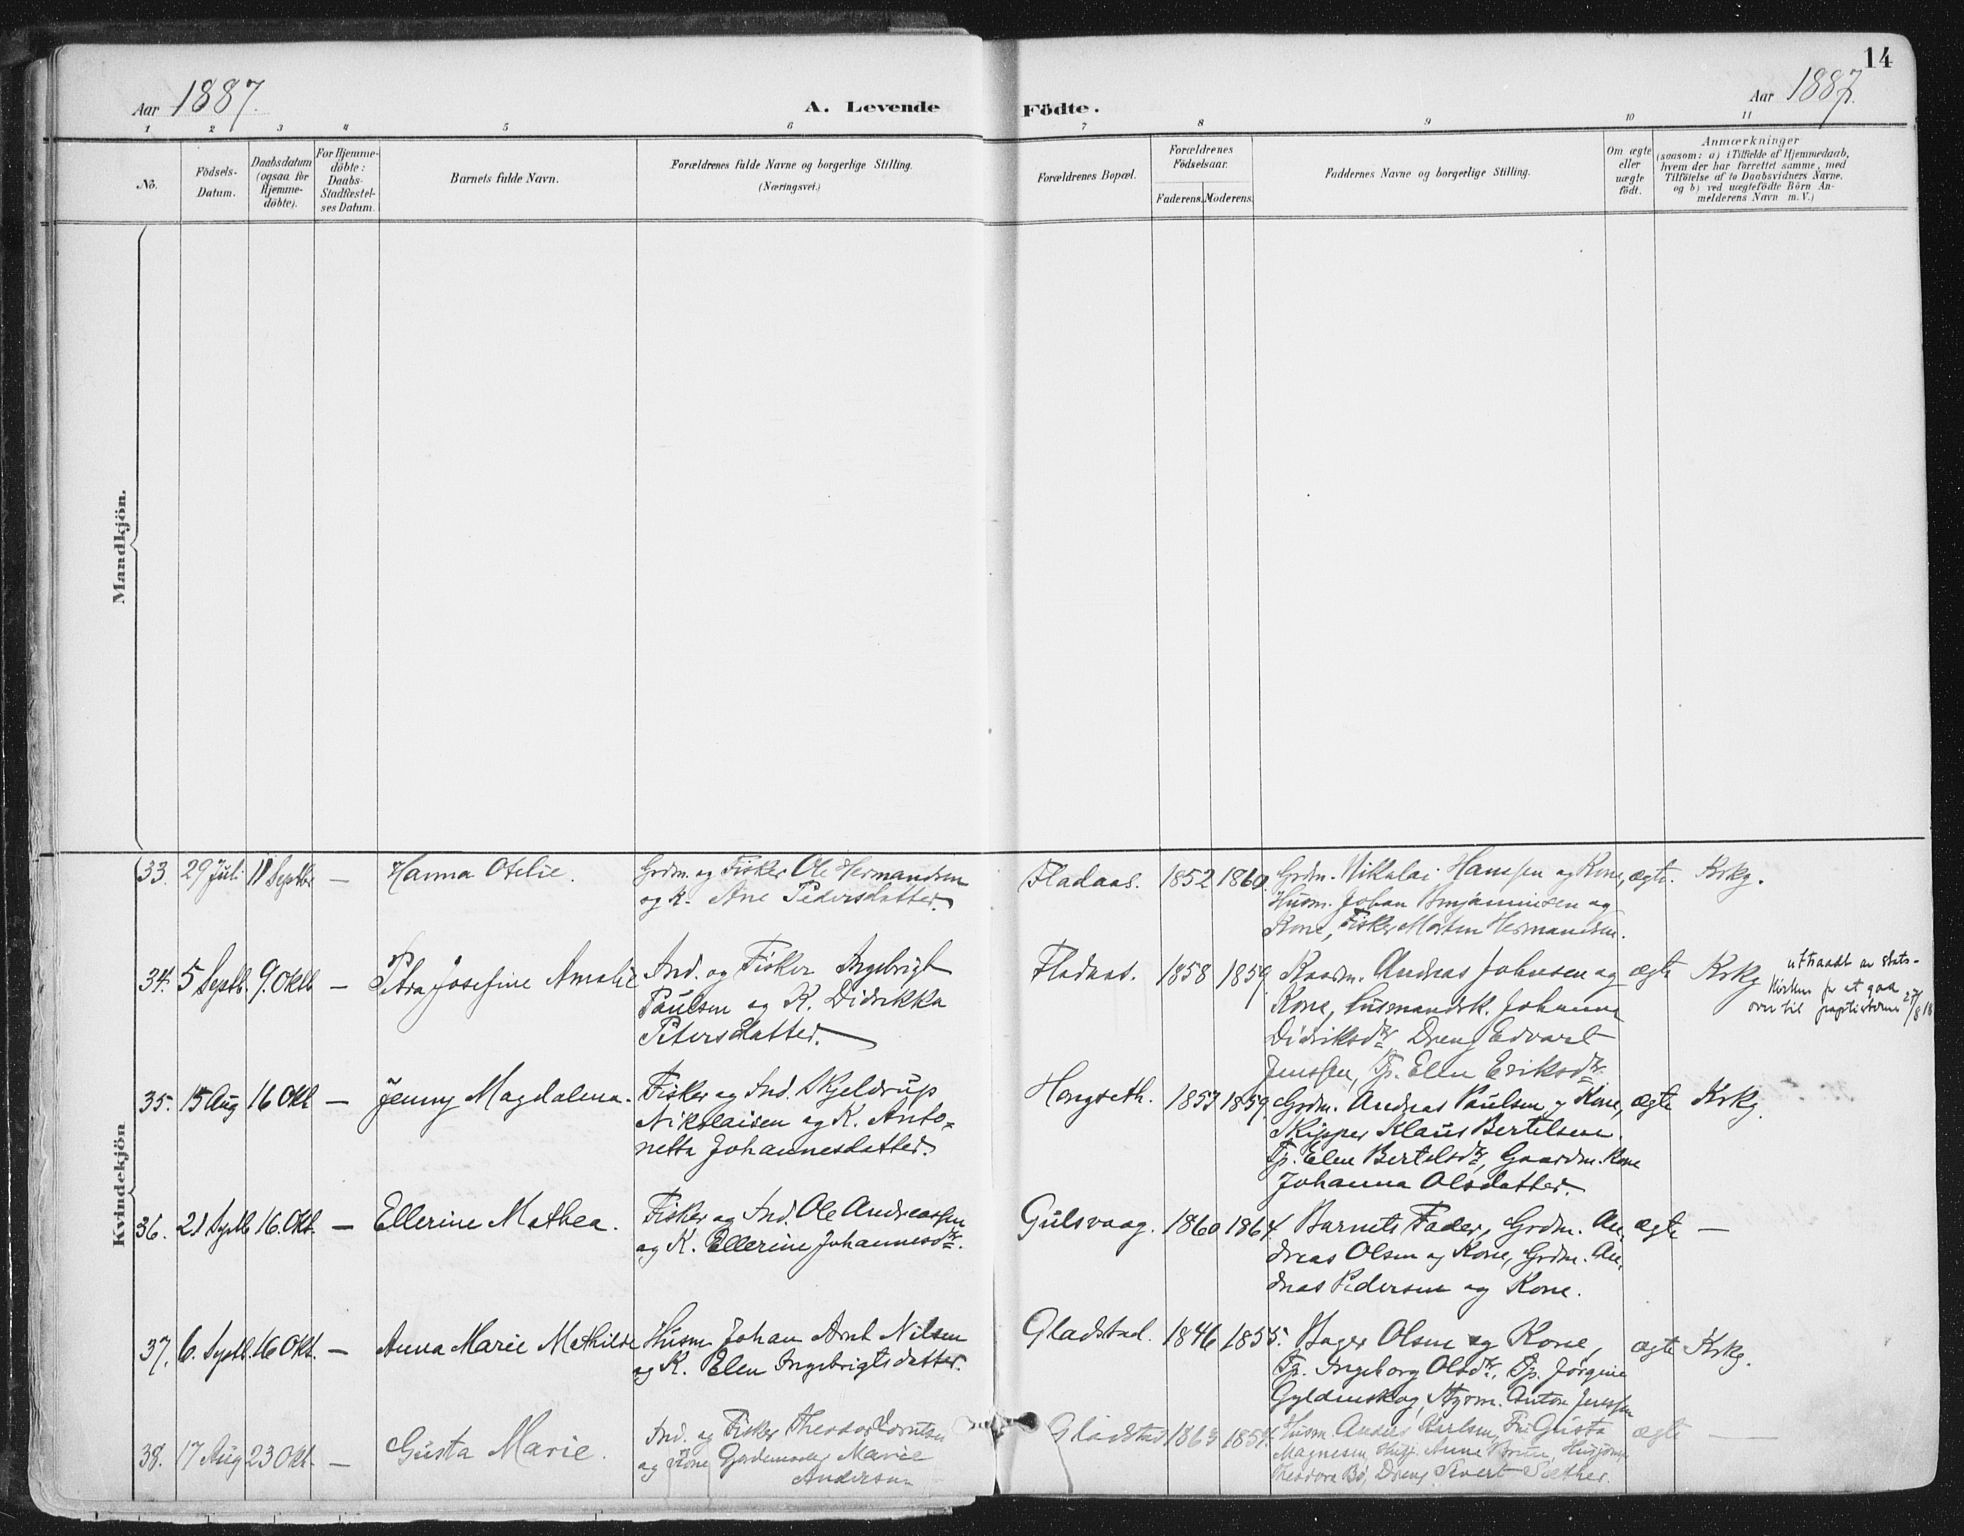 14
Aar 1887.
A. Levende Födte.
Aar 1887.
1 2 3 4 5 6 7 8 9 10 11
No.
Födsels-Datum.
Daabsdatum (ogsaa for Hjemmedöbte).
For Hjemmedöbte: Daabs-Stadfæstelses Datum.
Barnets fulde Navn.
Forældrenes fulde Navne og borgerlige Stilling.
(Næringsvei.)
Forældrenes Bopæl.
Forældrenes Födselsaar.
Faderens. Moderens.
Faddernes Navne og borgerlige Stilling.
Om ægte eller uægte födt.
Anmærkninger
(saasom: a) i Tilfælde af Hjemmedaab,
hvem der har forrettet samme, med
Tilföielse af to Daabsvidners Navne,
og b) ved uægtefödte Börn Anmelderens Navn m. V.)
Mandkjön.
Kvindekjön
33. 29 Juli 18 Septbr — Hanna Otelie. Grdm. og Fisker Ole Hermandsen Fladaas. 1852 1860 Grdm. Nikolai Hanssen og Kone, ægte. Krkg.
og K. Ane Pedersdatter. Husm. Johan Benjaminsen og
Kone, Fisker Morten Hermandsen.
34. 5 Septb. 9. Oktb — Petra Josefine Amalie Ind. og Fisker Ingebrigt Fladaas. 1858 1859. Kaardm. Andreas Johnsen og ægte Krkg
Paulsen og K. Didrikka Kone, Husmandsk. Johanna
Petersdatter. Didriksdtr, Dreng Edvart
Jenssen, Tp. Elen Eriksdtr.
uttraadt av stats-
kirken for at gaa
over til baptisterne 27/8 18
35. 15 Aug 16 Okt — Jenny Magdalena. Fisker og Ind. Skjeldrup Hongseth. 1853 1859 Grdm. Andreas Paulsen og Kone, ægte Krkg.
Nikolaisen og K. Anto- Skipper Klaus Bertelsen.
netta Johannesdatter. Tp. Elen Bertelsdtr, Gaardm. Kone
Johanna Olsdatter.
36. 21 Septb 16. Okt. — Ellerine Mathea. Fisker og Ind. Ole Andreassen Gulsvaag. 1860 1864. Barnets Fader, Grdm. An- ægte —
og K. Ellerine Johannesdtr. dreas Olsen og Kone, Grdm. An-
dreas Pedersen og Kone.
37. 6. Septb. 16 Okt. — Anna Marie Mathilde Husm. Johan Arnt Nilsen Gladstad. 1846 1855. Bager Olsen og Kone, ægte Krkg.
og K. Elen Ingebrigtsdatter. Tp. Ingeborg Olsdtr. Tp. Jörgine
Gyldenskog, Styrm. Anton Jenssen
38. 17 Aug 23 Okt. — Gusta Marie. Ind. og Fisker Theodor Gladstad 1863 1857. Husm. Anders Karlsen, Fru Gusta ægte —
og Kone Gjordemoder Marie Magnesen, Anne
Andersen Theodora Bö, Dreng Sivert Sæther.